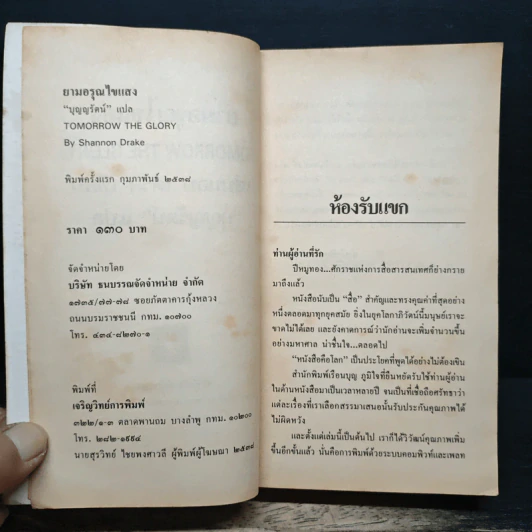 ยามอรุณไขแสง
"บุญญรัตน์" แปล
TOMORROW THE GLORY
By Shannon Drake
พิมพ์ครั้งแรก กุมภาพันธ์ ๒๕๓๘
ราคา ๑๓๐ บาท
จัดจำหน่ายโดย
บริษัท ธนบรรณจัดจำหน่าย จำกัด
๑๗๓๕/๗๗-๗๘ ซอยภัตตาคารกุ้งหลวง
ถนนบรมราชชนนี กทม. ๑๐๗๐๐
โทร. ๔๓๔-๘๒๗๐-๑
พิมพ์ที่
เจริญวิทย์การพิมพ์
๓๒๒/๑-๓ ตลาดพานถม บางลำพู กทม. ๑๐๒๐๐
โทร. ๒๘๒-๑๕๙๔
นายสุรวิทย์ ไชยพงศาวลี ผู้พิมพ์ผู้โฆษณา ๒๕๓๘
ห้องรับแขก
ท่านผู้อ่านที่รัก
ปีหมูทอง...ศักราชแห่งการสื่อสารสนเทศก็ย่างกราย
มาถึงแล้ว
หนังสือนับเป็น "สื่อ" สำคัญและทรงคุณค่าที่สุดอย่าง
หนึ่งตลอดมาทุกยุคสมัย ยิ่งในยุคโลกาภิวัตน์นี้มนุษย์เราจะ
ขาดไม่ได้เลย และยังคาดการณ์ว่านักอ่านจะเพิ่มจำนวนขึ้น
อย่างมหาศาล น่าชื่นใจ...ตลอดไป
"หนังสือคือโลก" เป็นประโยคที่พูดได้อย่างไม่ต้องเขิน
สำนักพิมพ์เรือนบุญ ภูมิใจที่ยืนหยัดรับใช้ท่านผู้อ่าน
ในด้านหนังสือมาเป็นเวลาหลายปี จนเป็นที่เชื่อถือศรัทธาว่า
แต่ละเรื่องที่เราเลือกสรรมาเสนอนั้นรับประกันคุณภาพได้
ไม่ผิดหวัง
และตั้งแต่เล่มนี้เป็นต้นไป เราก็ได้วิวัฒน์คุณภาพเพิ่ม
ขึ้นอีกขั้นแล้ว นั่นคือการพิมพ์ด้วยระบบคอมพิวท์และเพลท